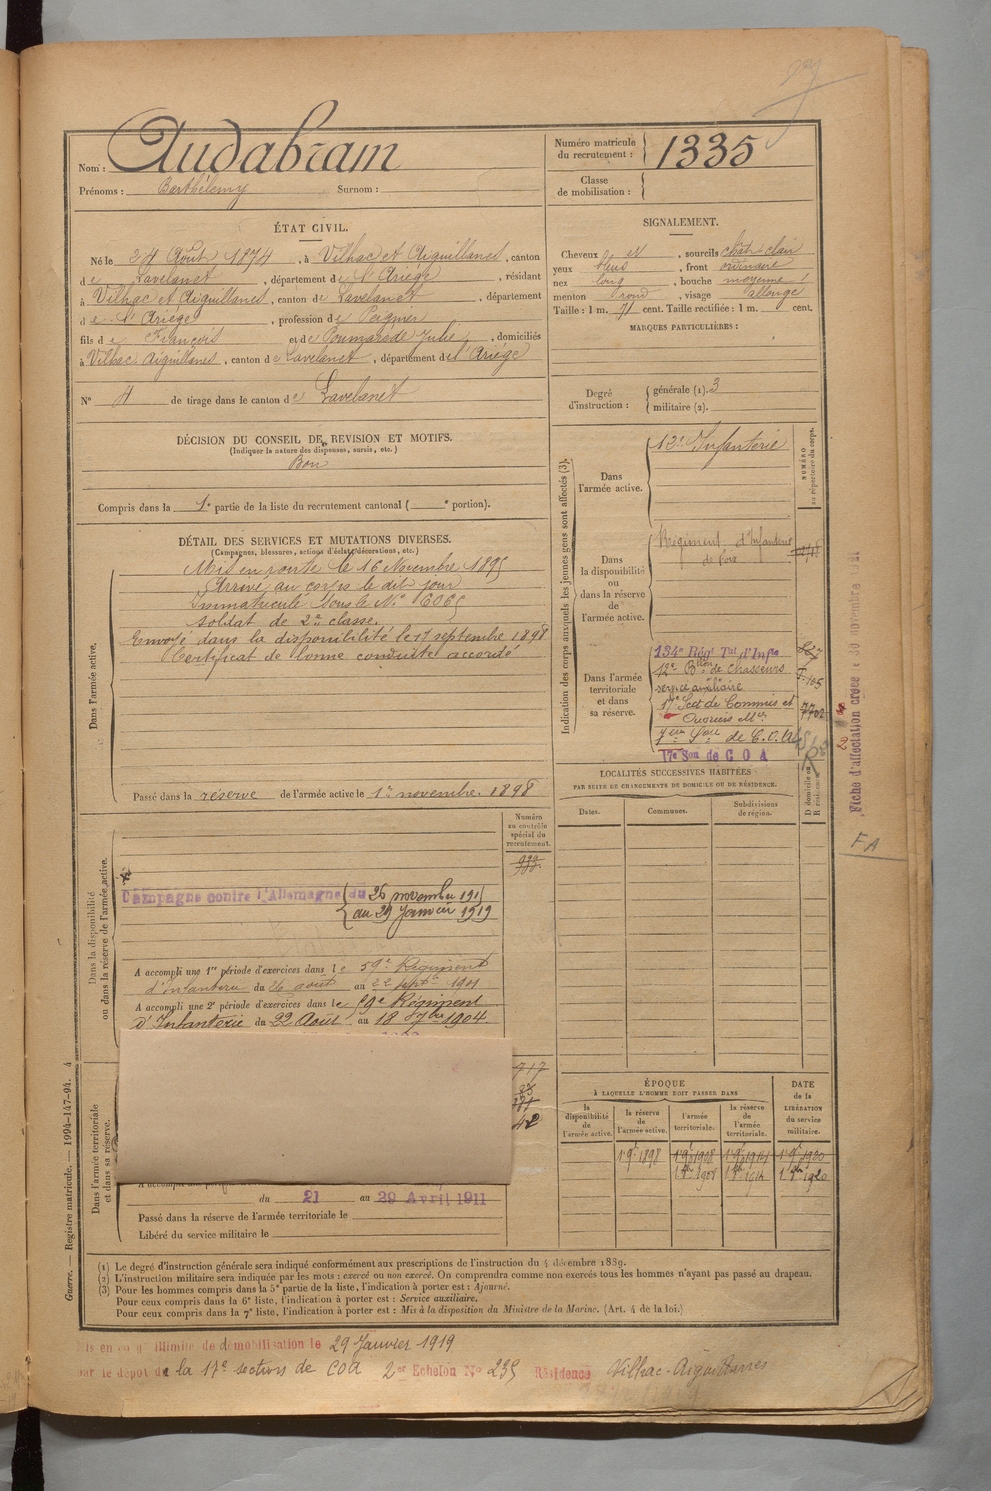 Nom : Audabram
Prénoms : Barthélemy Surnom :
Numéro matricule du recrutement : 1335
Classe de mobilisation :
ÉTAT CIVIL.
Né le 24 Août 1874, à Vilhac et Aiguillanes, canton
de Lavelanet, département de l'Ariége, résidant
à Vilhac et Aiguillanes, canton de Lavelanet, département
de l'Ariége, profession de Peigneur
fils de François et de Poumarède Julie, domiciliés
à Vilhac Aiguillanes, canton de Lavelanet, département de l'Ariége
N° 4 de tirage dans le canton de Lavelanet
SIGNALEMENT.
Cheveux et, sourcils chât-clair
yeux bleus, front ordinaire
nez long, bouche moyenne
menton rond, visage allongé
Taille : 1 m. 71 cent. Taille rectifiée : 1 m. cent.
MARQUES PARTICULIÈRES :
Degré d'instruction : générale (1). 3
militaire (2).
DÉCISION DU CONSEIL DE REVISION ET MOTIFS.
(Indiquer la nature des dispenses, sursis, etc.)
Bon
Compris dans la 1e partie de la liste du recrutement cantonal ( e portion).
DÉTAIL DES SERVICES ET MUTATIONS DIVERSES.
(Campagnes, blessures, actions d'éclat, décorations, etc.)
Dans l'armée active.
Mis en route le 16 Novembre 1895
Arrivé au corps le dit jour
Immatriculé sous le N° 6065
soldat de 2e classe.
Envoyé dans la disponibilité le 17 septembre 1898
Certificat de bonne conduite accordé
Passé dans la réserve de l'armée active le 1er novembre 1898
Indication des corps auxquels les jeunes gens sont affectés (3).
NUMÉRO au répertoire du corps.
Dans l'armée active.
12e Infanterie
Dans la disponibilité ou dans la réserve de l'armée active.
Régiment d'Infanterie
de Foix
Dans l'armée territoriale et dans sa réserve.
134e Régt Tal d'Infie
12e Bton de Chasseurs
service auxiliaire
17e Sect de Commis et
Ouvriers Mres
de C.O.A
17e Son de C O A
LOCALITÉS SUCCESSIVES HABITÉES
PAR SUITE DE CHANGEMENTS DE DOMICILE OU DE RÉSIDENCE.
Dates. Communes. Subdivisions de région. D domicile ou R résidence.
Fiche d'affectation créée le 30 novembre
FA
Dans la disponibilité ou dans la réserve de l'armée active.
Numéro au contrôle spécial du recrutement.
999
Campagne contre l'Allemagne du 26 novembre 1915
au 29 Janvier 1919
A accompli une 1re période d'exercices dans le 59e Régiment
d'Infanterie du 26 août au 22 septbre 1901
A accompli une 2e période d'exercices dans le 59e Régiment
d'Infanterie du 22 Août au 18 7bre 1904.
717
Dans l'armée territoriale et dans sa réserve.
du 21 au 29 Avril 1911
Passé dans la réserve de l'armée territoriale le
Libéré du service militaire le
ÉPOQUE
À LAQUELLE L'HOMME DOIT PASSER DANS
la disponibilité de l'armée active. la réserve de l'armée active. l'armée territoriale. la réserve de l'armée territoriale.
DATE de la LIBÉRATION du service militaire.
1 9bre 1898 1 9bre 1908 1 9bre 1914 1 9bre 1920
Guerre. — Registre matricule. — 1994-147-94. 4
(1) Le degré d'instruction générale sera indiqué conformément aux prescriptions de l'instruction du 4 décembre 1889.
(2) L'instruction militaire sera indiquée par les mots : exercé ou non exercé. On comprendra comme non exercés tous les hommes n'ayant pas passé au drapeau.
(3) Pour les hommes compris dans la 5e partie de la liste, l'indication à porter est : Ajourné.
Pour ceux compris dans la 6e liste, l'indication à porter est : Service auxiliaire.
Pour ceux compris dans la 7e liste, l'indication à porter est : Mis à la disposition du Ministre de la Marine. (Art. 4 de la loi.)
is en congé illimité de démobilisation le 29 Janvier 1919
par le dépôt de la 17e section de COA 2e Echelon N° 235 Résidence Vilhac-Aiguillanes